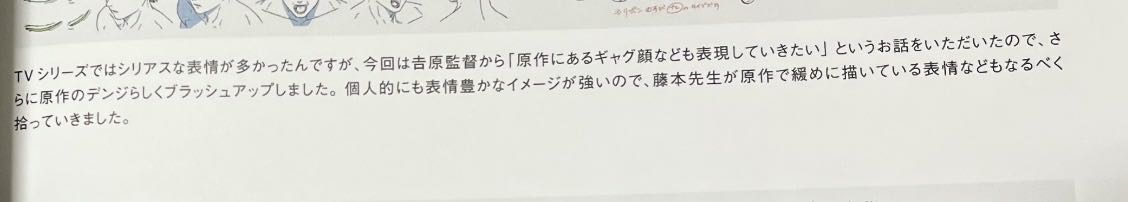 TVシリーズではシリアスな表情が多かったんですが、今回は𠮷原監督から「原作にあるギャグ顔なども表現していきたい」というお話をいただいたので、さ
らに原作のデンジらしくブラッシュアップしました。個人的にも表情豊かなイメージが強いので、藤本先生が原作で緩めに描いている表情などもなるべく
拾っていきました。